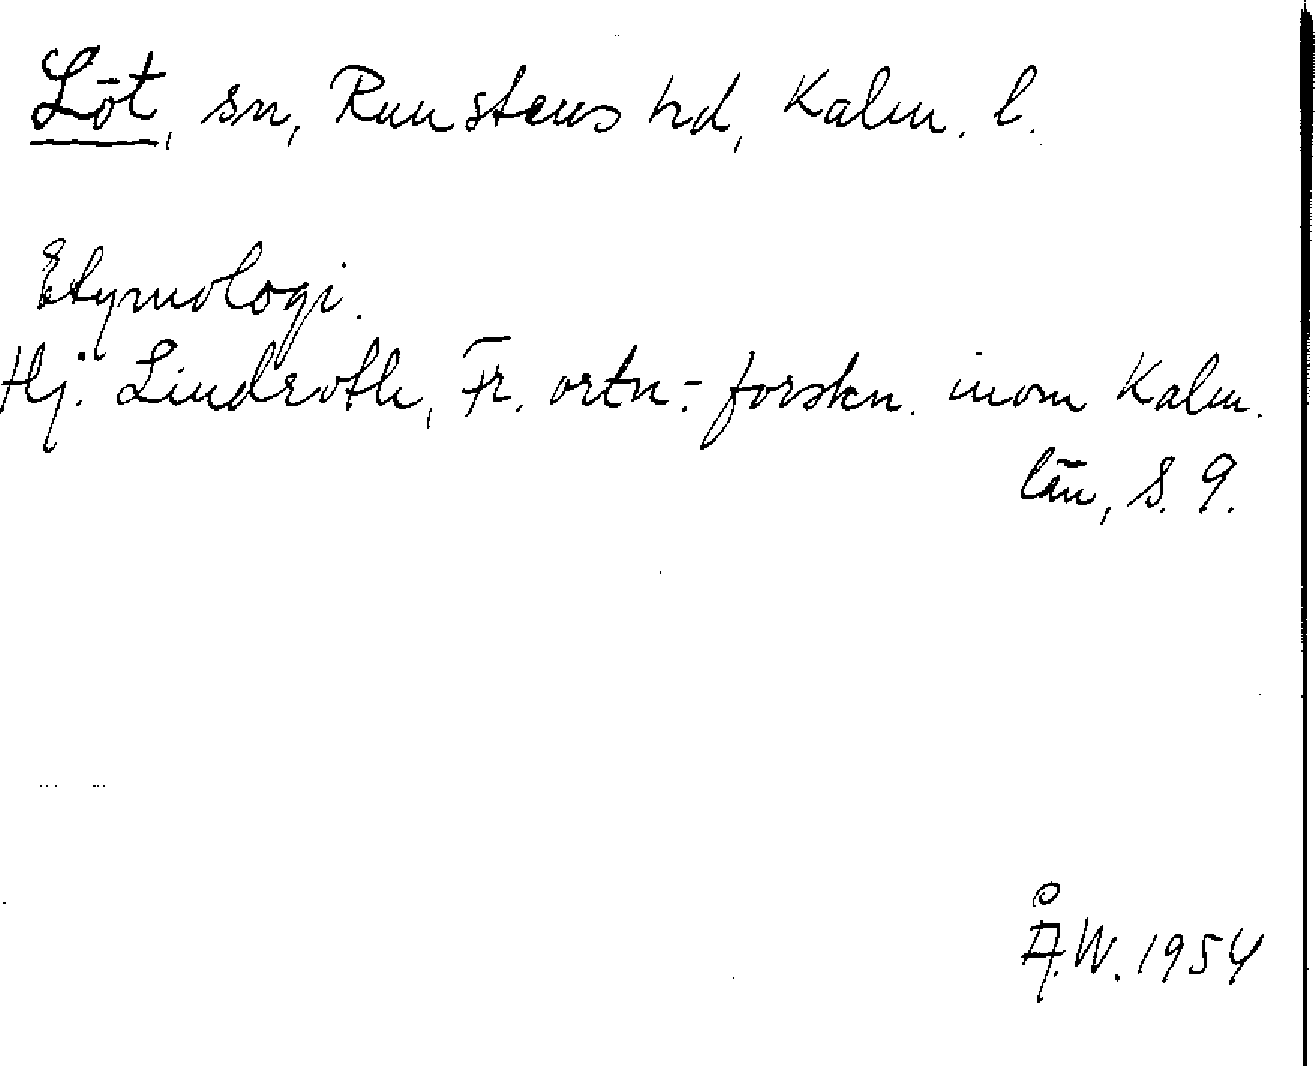 Löt, sn, Runstens hd, Kalm. l.
Etymologi.
Hj. Lindroth, Fr. ortn.-forskn. inom Kalm.
län, s. 9.
Å.W. 1954